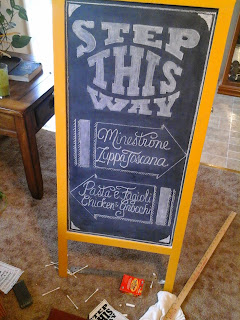 STEP
THIS
WAY
Minestrone
Zuppa Toscana
Pasta e Fagioli
Chicken & Gnocchi